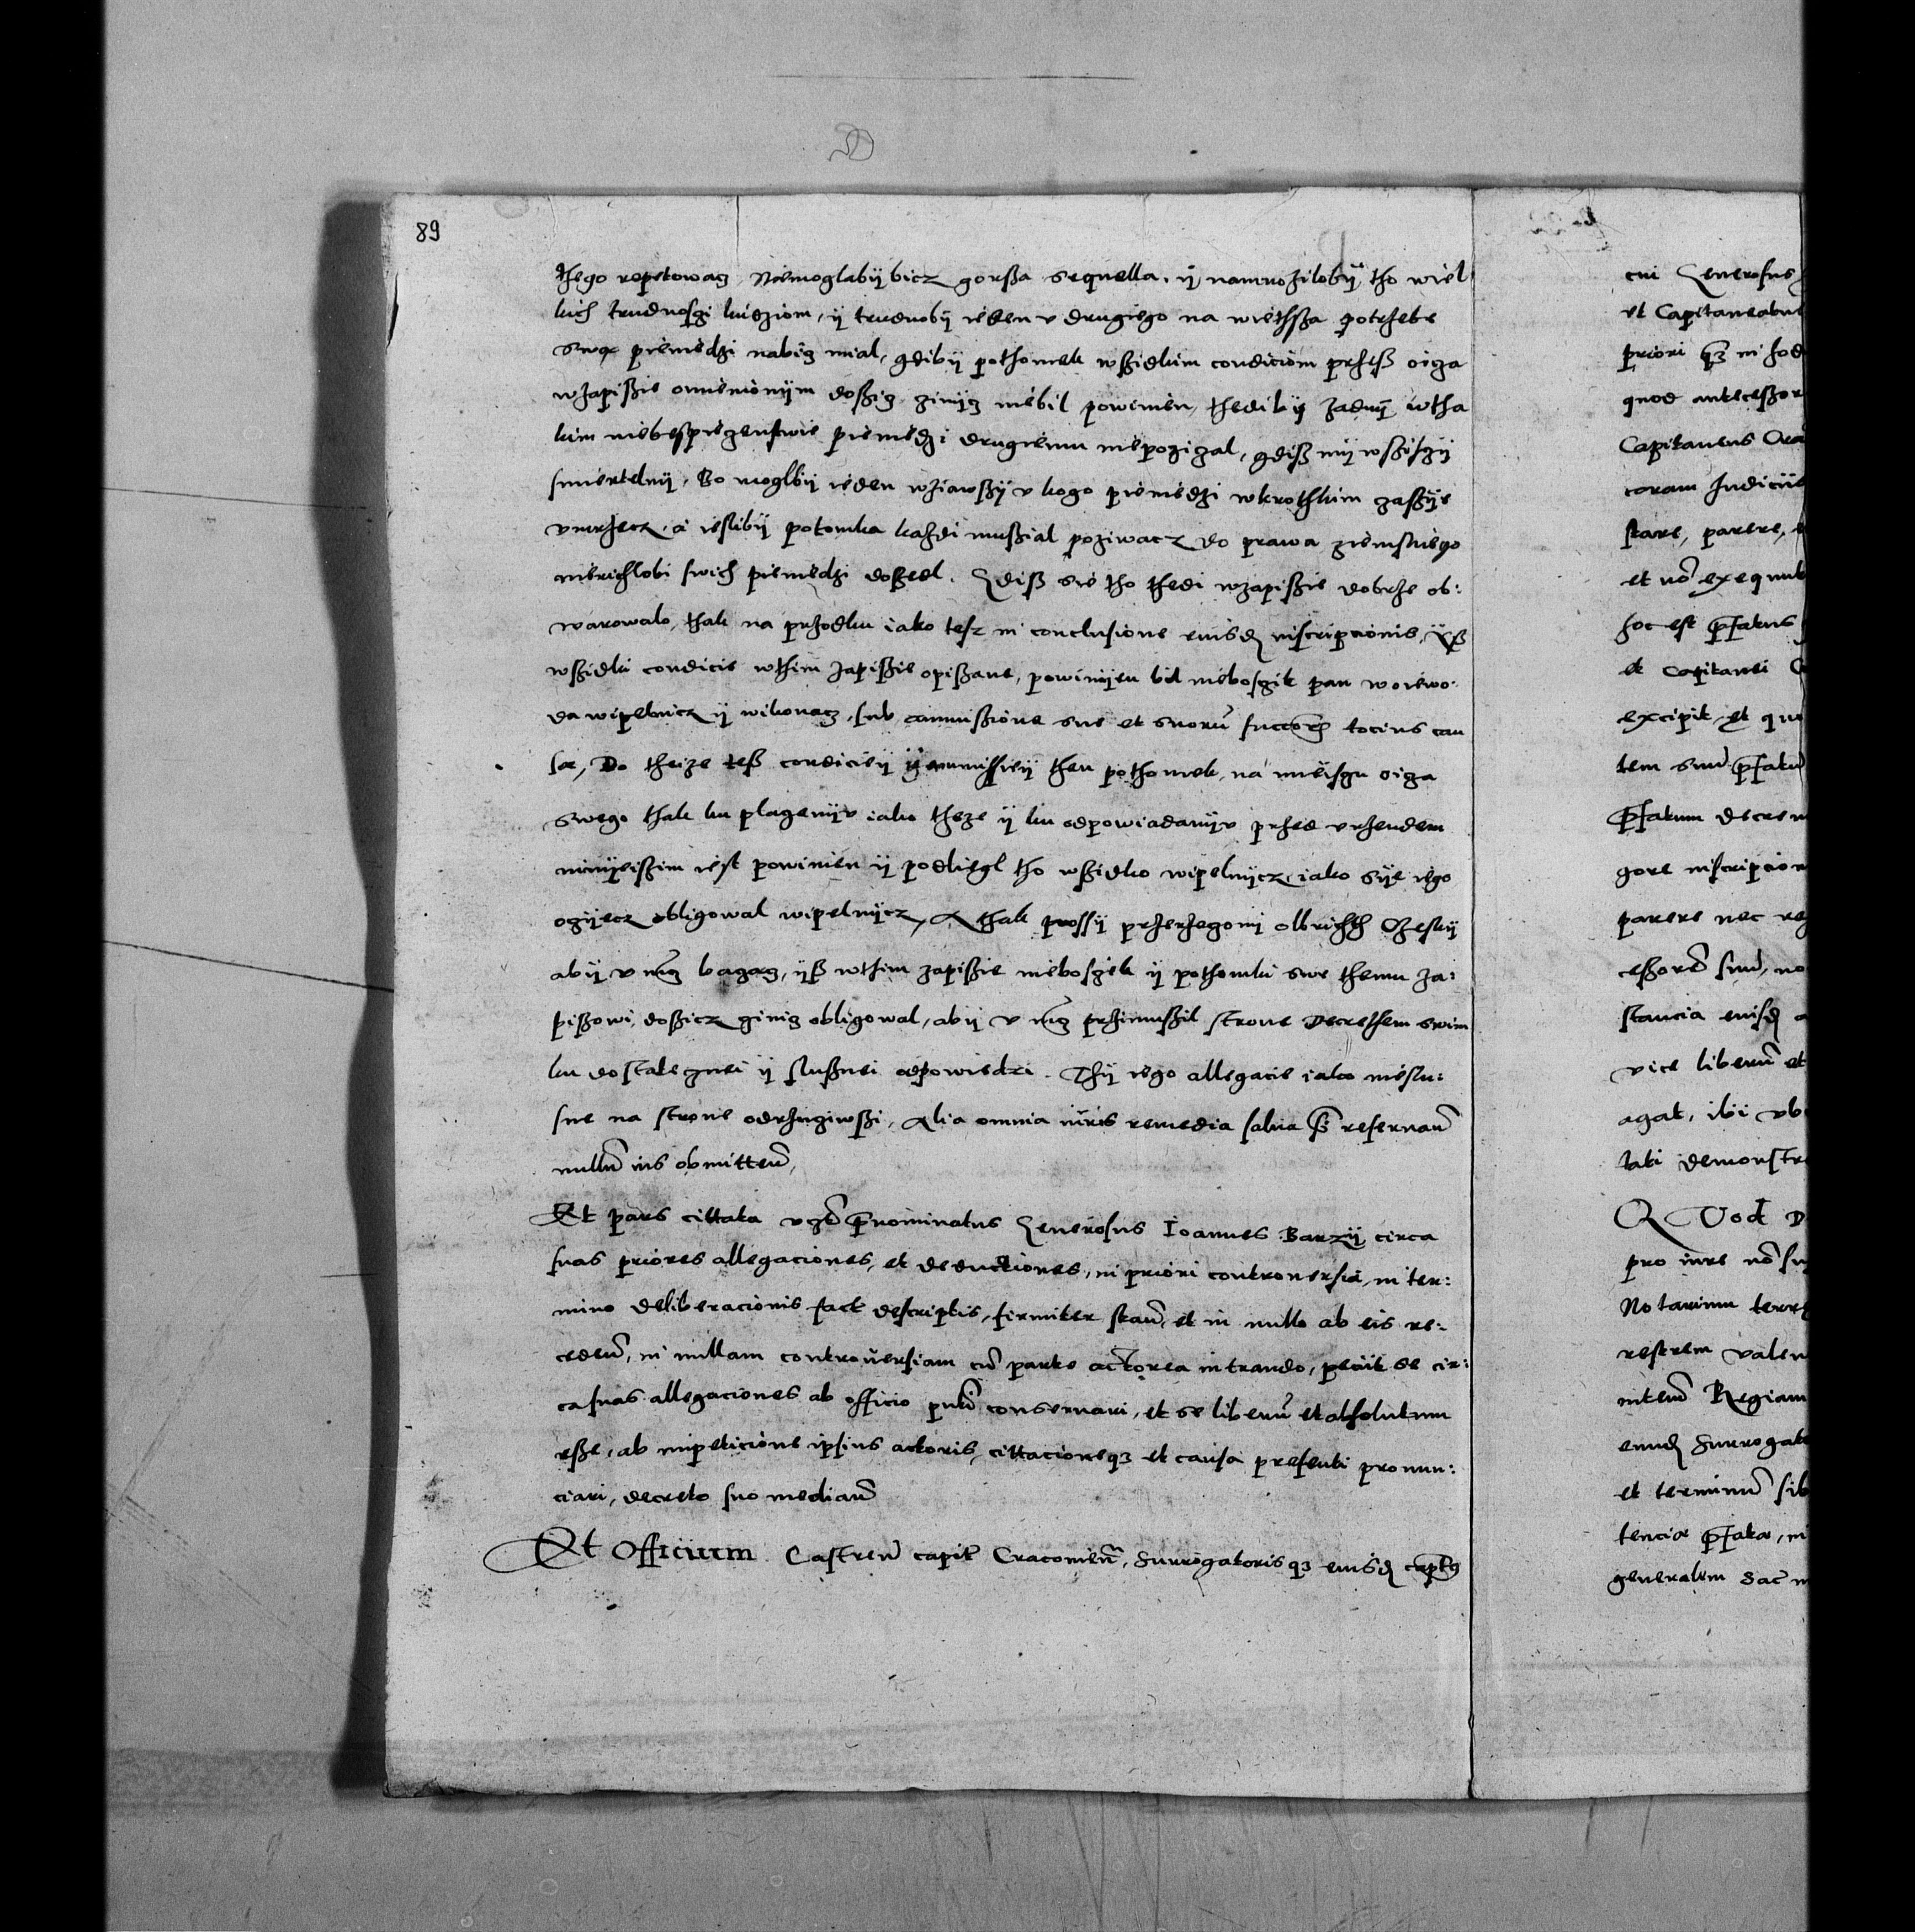 89
thego repetowacz Niemoglabÿ bicz gorsza sequella, ÿ namnoziłobÿ tho wiel
kich trudnosczi ludziom, ÿ trudnobÿ ieden v drugiego na wiethsza potrzebe
swą pieniedzi nabicz mial, gdibÿ pothomek wszidkim condiciom przesz oicza
wzapiszie omienionÿm doszicz ziniÿcz niebil powinien, thedibÿ zadnÿ wtha
kim niebespieczenstwie pieniedzi drugiemu niepozÿczal, gdisz mÿ wszisczÿ
smiertelnÿ, Bo moglbÿ ieden wziawszÿ v kogo pieniedzi wkrothkim czaszÿe
vmrzecz, a ieslibÿ potomka kazdi muszial poziwacz do prawa ziemskiego
nierichlobi swich pieniedzi doszedl. Gdisz sie tho thedi wzapiszie dobrze ob:
warowalo, thak na przodku iako tesz in conclusione eiusdem inscripcionis, Ÿsz
wszidki condicie wthim zapiszie opiszane, powinÿen bil nieboszik pan woiewo:
da wipelnicz ÿ wikonacz, sub amissione sue et suorum succorum tocius cau
sæ, Do theize tesz condicieÿ ÿ amissieÿ then pothomek, na mieisczu oicza
swego thak ku placzenÿv iako theze ÿ ku odpowiadanÿv przed vrzendem
ninÿeiszim iest powinien ÿ podliegl tho wszidko wipelnÿcz, iako sÿe iego
oczÿecz obligowal wipelnÿcz, A thak prossÿ przerzeczonÿ olbrichth Czeskÿ
abÿ v mcz baczacz, ÿsz wthim zapiszie nieboszik ÿ pothomki swe themu za:
piszowi, doszicz ziniz obligowal, abÿ v mcz przimuszil strone Decrethem swim
ku dostatecznei ÿ slusznei odpowiedzi. Thÿ iego allegacie iako nieslu:
sne na strone odrzuciwszi, Alia omnia iuris remedia salua sibi reseruan
nullum ius obmitten,
Et pars cittata vz prenominatus Generosus Ioannes Barzÿ circa
suas priores allegaciones, et deductiones, in priori controuersia, in ter:
mino deliberacionis fact descriptis, firmiter stan, et in nullo ab eis re:
ceden, in nullam controuersiam cum parte actorea intrando, petiit se cir:
ca suas allegaciones ab officio pnti conseruari, et se liberum et absolutum
esse, ab impeticione ipsius actoris, cittacioneqz et causa presenti pronun:
ciari, decreto suo median
Et Officium Castren capit Cracouien, Surrogatorisqz eiusdem capts
cui Generosus
et Capitaneatus
priori qz in hod
quod antecessor
Capitaneus Cra
coram Judiciis
stare, parere,
et non exequut
hoc est prefatus
et Capitanei
excipit, et qui
tem suum prefatum
Prefatum Decretum
gore inscripcion
parere nec re
cessorem suum, no
stancia eiusdem
vice liberum et
agat, ibi vb
tati demonstra
QVod D
pro iure non su
Notarium terre
restrem valen
inteuen Regiam
eiusdem Surrogato
et terminum sib
tencia prefata, in
generalem Sac m